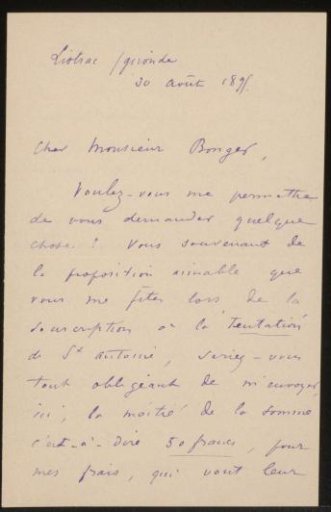 Listrac / gironde
30 août 189
cher Monsieur Bonger,
Voulez-vous me permettre
de vous demander quelque
chose ? Vous souvenant de
la proposition aimable que
vous me fîtes lors de la
souscription à la Tentation
de St Antoine, seriez-vous
tout obligeant de m'envoyer,
ici, la moitié de la somme
c'est-à-dire 50 francs, pour
mes frais, qui vont leur